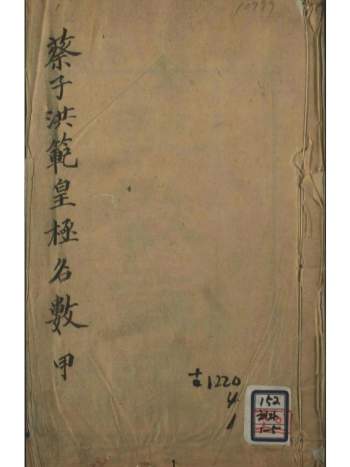 蔡子洪範皇極名數 甲
古1220
4
1
152